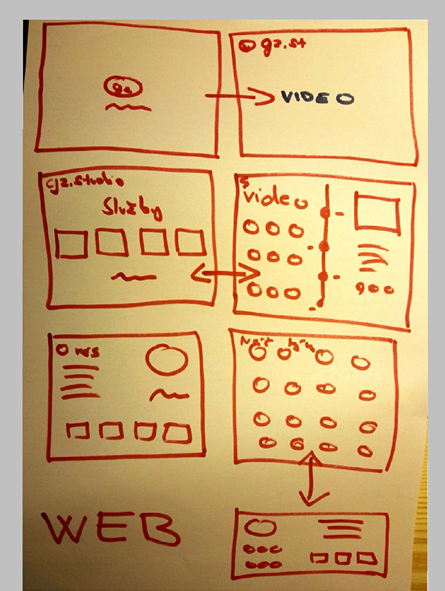 ga
ga.st
VIDEO
ga.studio
Služby
Video
O nás
WEB